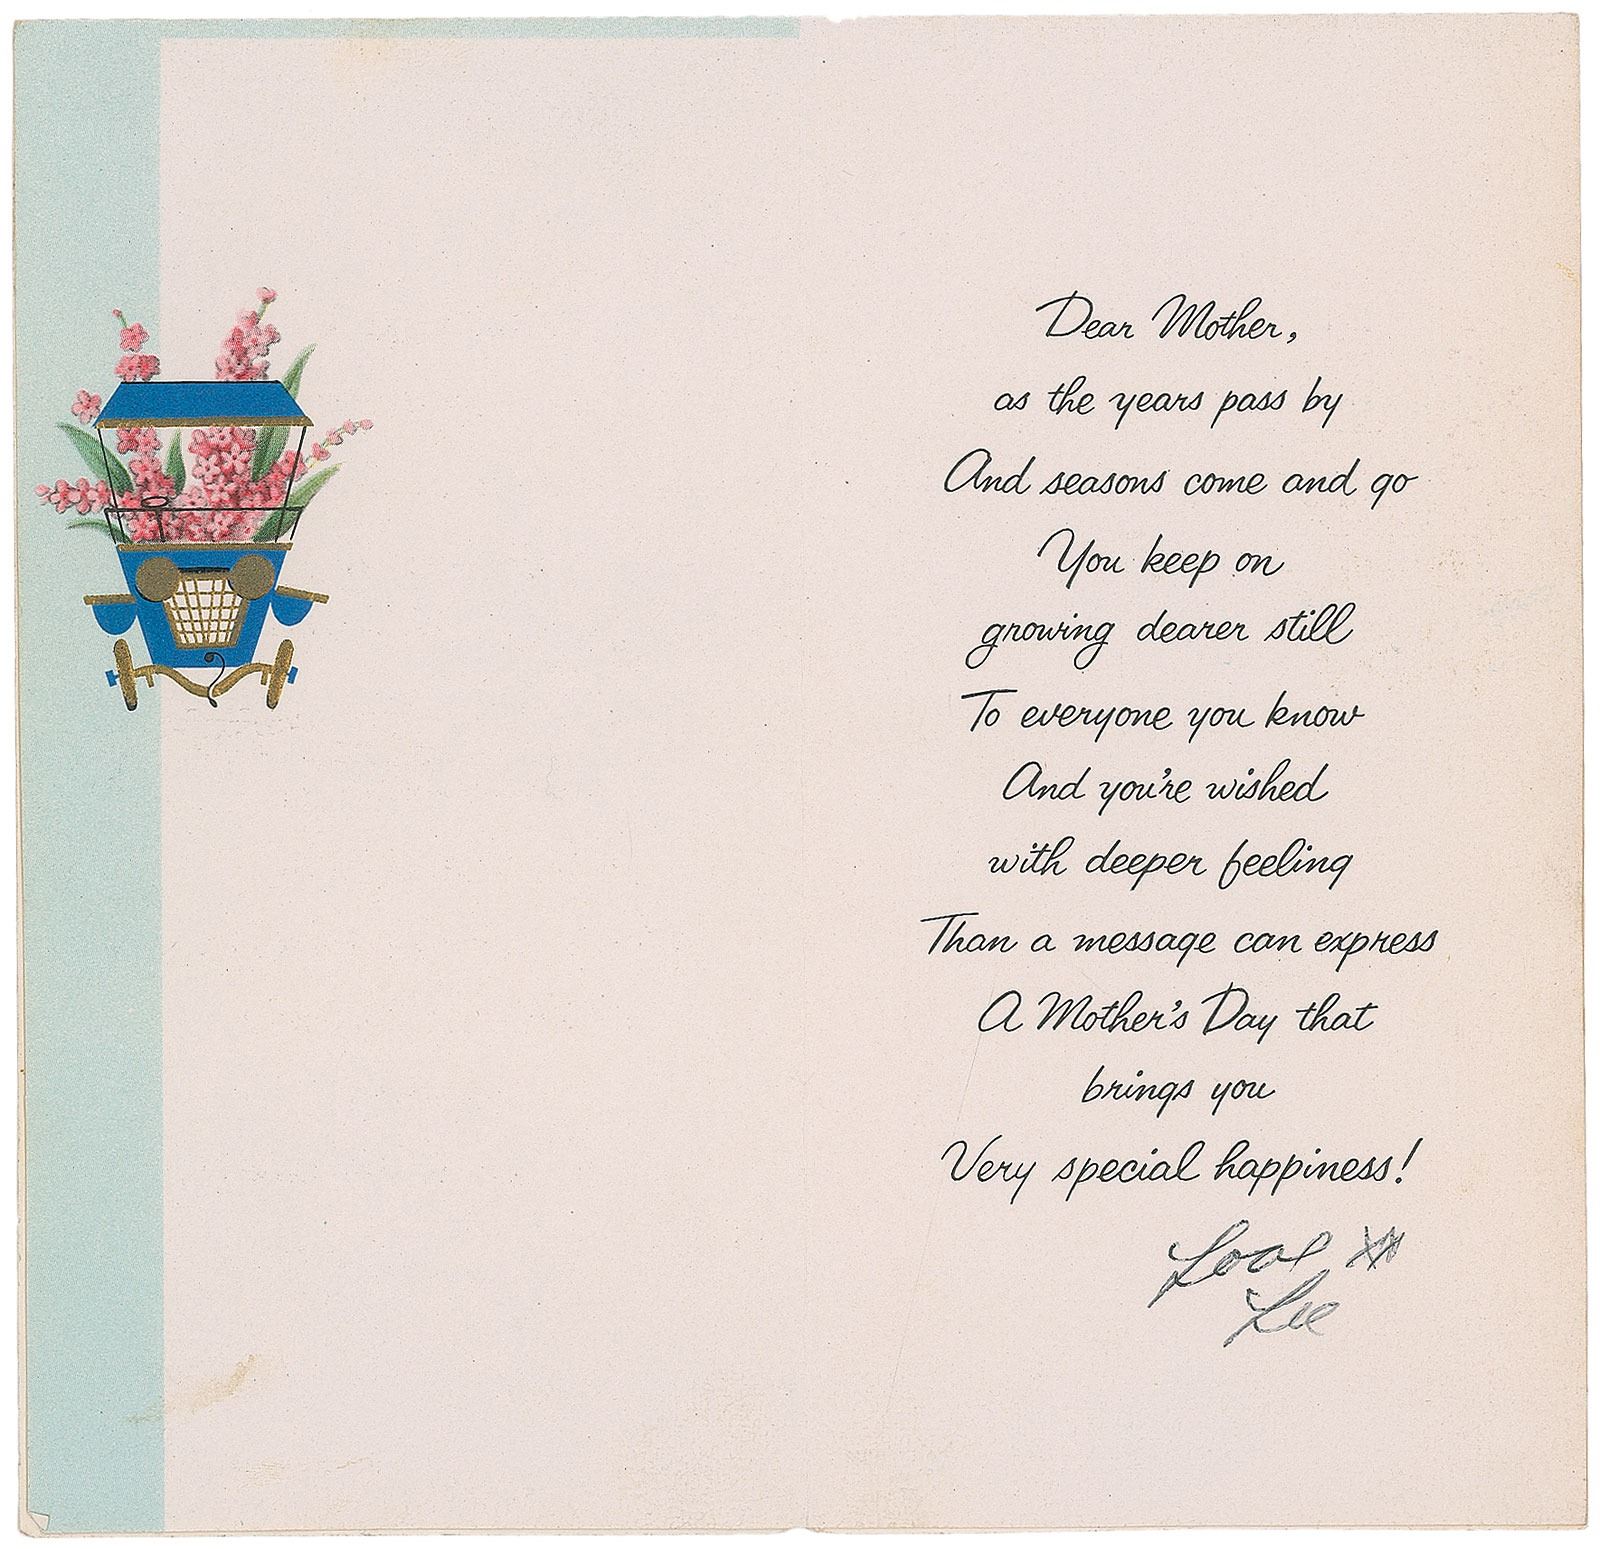 Dear Mother,
as the years pass by
And seasons come and go
You keep on
growing dearer still
To everyone you know
And you're wished
with deeper feeling
Than a message can express
A Mother's Day that
brings you
Very special happiness!
Love XX
Lee